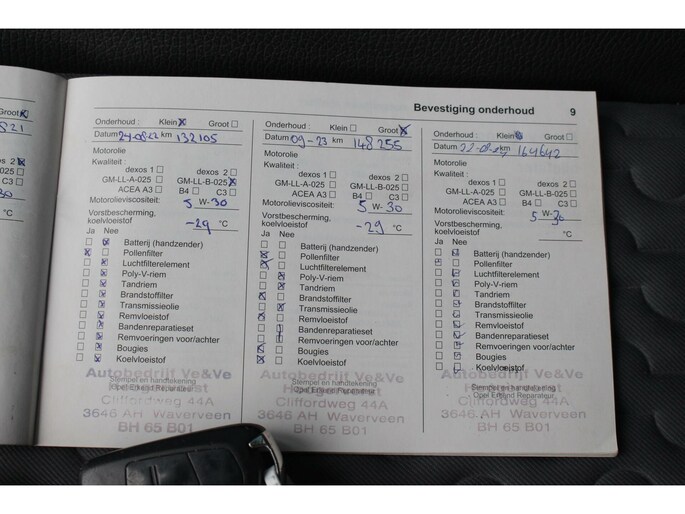 Groot
821
xos 2
C3
30
Bevestiging onderhoud 9
Onderhoud : Klein Groot
Datum 24-08-22 km 132105
Motorolie
Kwaliteit :
dexos 1 dexos 2
GM-LL-A-025 GM-LL-B-025
ACEA A3 B4 C3
Motorolieviscositeit: 5 W- 30
Vorstbescherming,
koelvloeistof -29 °C
Ja Nee
Batterij (handzender)
Pollenfilter
Luchtfilterelement
Poly-V-riem
Tandriem
Brandstoffilter
Transmissieolie
Remvloeistof
Bandenreparatieset
Remvoeringen voor/achter
Bougies
Koelvloeistof
Autobedrijf Ve&Ve
Stempel en handtekening
Opel Erkend Reparateur
Cliffordweg 44A
3646 AH Waverveen
BH 65 B01
Onderhoud : Klein Groot
Datum 09-23 km 148255
Motorolie
Kwaliteit :
dexos 1 dexos 2
GM-LL-A-025 GM-LL-B-025
ACEA A3 B4 C3
Motorolieviscositeit: 5 W- 30
Vorstbescherming,
koelvloeistof -29 °C
Ja Nee
Batterij (handzender)
Pollenfilter
Luchtfilterelement
Poly-V-riem
Tandriem
Brandstoffilter
Transmissieolie
Remvloeistof
Bandenreparatieset
Remvoeringen voor/achter
Bougies
Koelvloeistof
Autobedrijf Ve&Ve
Stempel en handtekening
Opel Erkend Reparateur
Cliffordweg 44A
3646 AH Waverveen
BH 65 B01
Onderhoud : Klein Groot
Datum 22-08- km 164642
Motorolie
Kwaliteit :
dexos 1 dexos 2
GM-LL-A-025 GM-LL-B-025
ACEA A3 B4 C3
Motorolieviscositeit: 5 W- 30
Vorstbescherming,
koelvloeistof °C
Ja Nee
Batterij (handzender)
Pollenfilter
Luchtfilterelement
Poly-V-riem
Tandriem
Brandstoffilter
Transmissieolie
Remvloeistof
Bandenreparatieset
Remvoeringen voor/achter
Bougies
Koelvloeistof
Autobedrijf Ve&Ve
Stempel en handtekening
Opel Erkend Reparateur
Cliffordweg 44A
3646 AH Waverveen
BH 65 B01